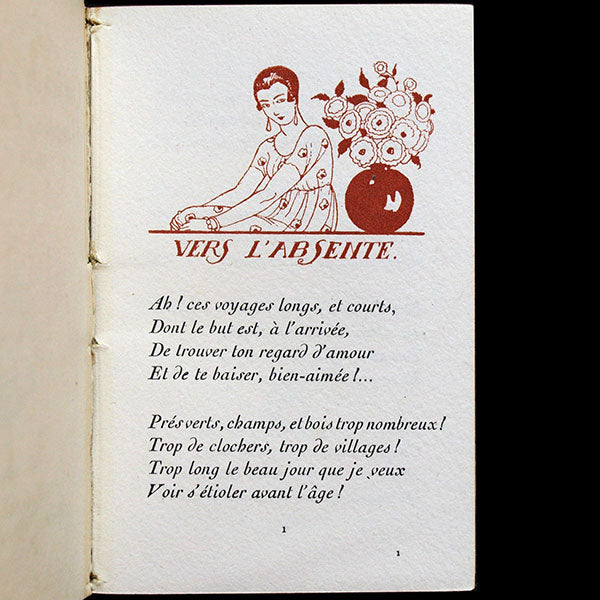 VERS L'ABSENTE.
Ah ! ces voyages longs, et courts,
Dont le but est, à l'arrivée,
De trouver ton regard d'amour
Et de te baiser, bien-aimée !...
Prés verts, champs, et bois trop nombreux !
Trop de clochers, trop de villages !
Trop long le beau jour que je veux
Voir s'étioler avant l'âge !
1
1